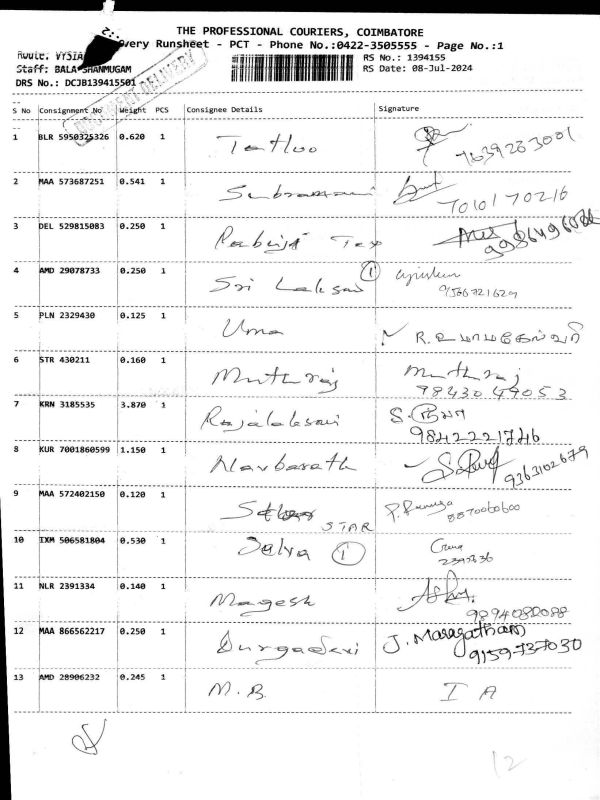 THE PROFESSIONAL COURIERS, COIMBATORE
very Runsheet - PCT - Phone No.:0422-3505555 - Page No.:1
Route: VYSIA
RS No.: 1394155
Staff: BALA SHANMUGAM
RS Date: 08-Jul-2024
DRS No.: DCJB139415501
DELIVERY
S No Consignment No Weight PCS Consignee Details Signature
1 BLR 5950325326 0.620 1
7639283001
2 MAA 573687251 0.541 1 Subramani
7010170216
3 DEL 529815083 0.250 1 Tex
4 AMD 29078733 0.250 1 Sri 1
5 PLN 2329430 0.125 1 Uma R. உமாமகேஸ்வரி
6 STR 430211 0.160 1 Muthuraj Muthuraj
98430 49053
7 KRN 3185535 3.870 1 S.
9842221746
8 KUR 7001860599 1.150 1 Navbarath
9363102679
9 MAA 572402150 0.120 1
STAR 8870060600
10 IXM 506581804 0.530 1 Selva 1
11 NLR 2391334 0.140 1 Magesh
9894080088
12 MAA 866562217 0.250 1 Durgadevi J. Maragatham
9159737030
13 AMD 28906232 0.245 1 M.B. I A
12